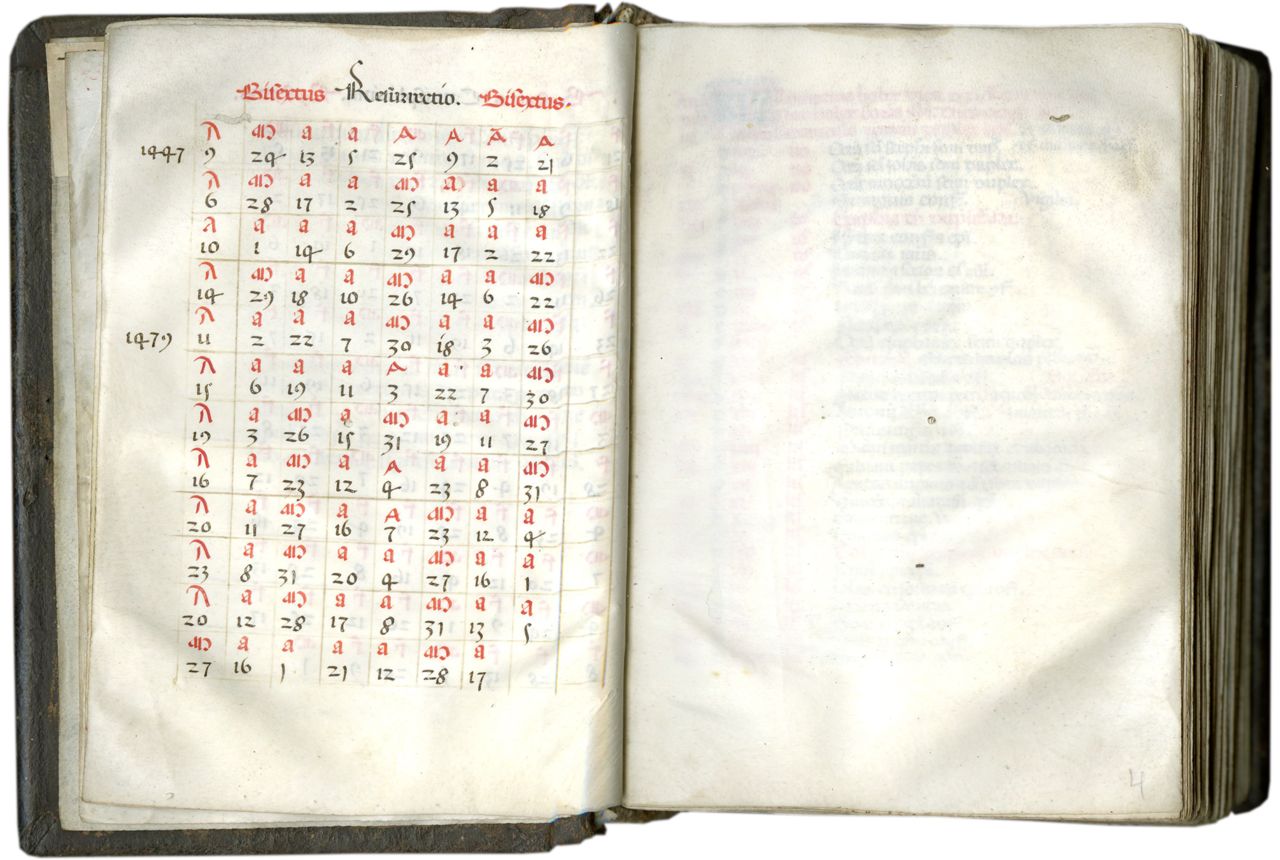 Bisextus Resurrectio. Bisextus.
A m a a A A A A
1447 9 24 13 5 25 9 2 21
A m a a m a a a
6 28 17 2 25 13 5 18
A a a a m a a a
10 1 14 6 29 17 2 22
A m a a m a a m
14 29 18 10 26 14 6 22
A a a a m a a m
1479 11 2 22 7 30 18 3 26
A a a a A a a m
15 6 19 11 3 22 7 30
A a m a m a a m
19 3 26 15 31 19 11 27
A a m a A a a m
16 7 23 12 4 23 8 31
A a m a A m a a
20 11 27 16 7 23 12 4
A a m a a m a a
23 8 31 20 4 27 16 1
A a m a a m a a
20 12 28 17 8 31 13 5
m a a a a m a
27 16 1 21 12 28 17
4